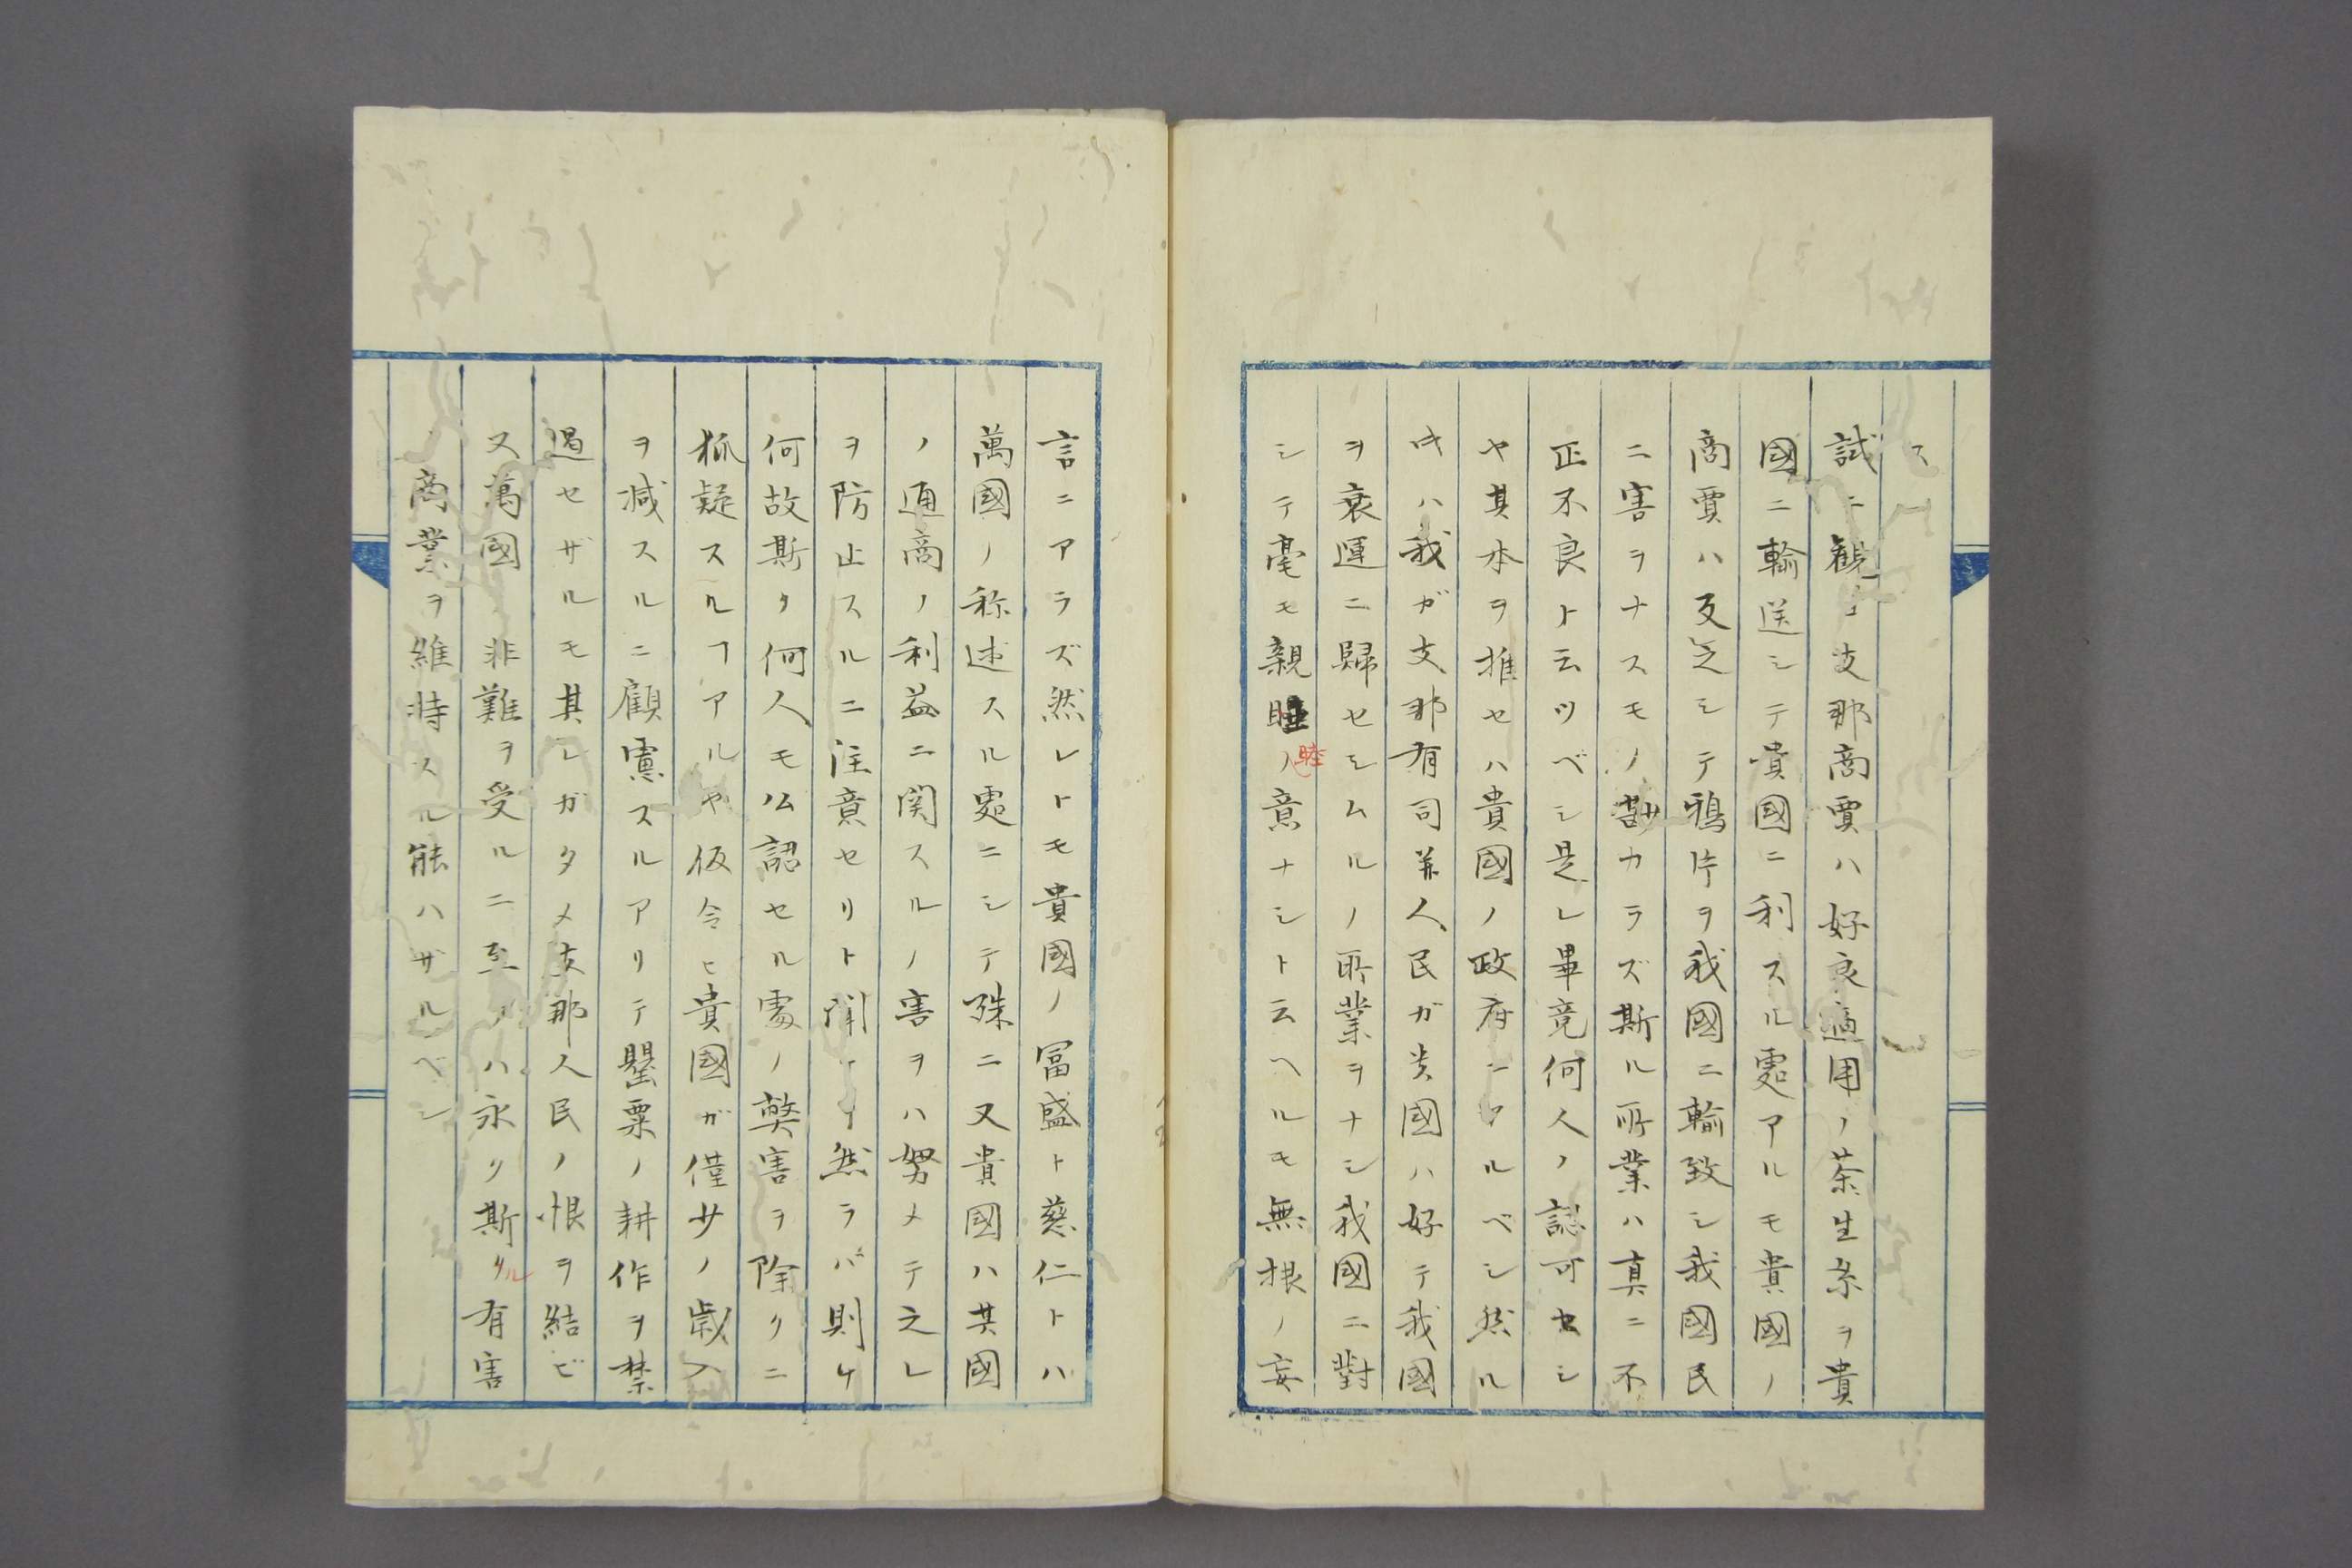 ス
試ニ観ヨ支那商賈ハ好良適用ノ茶生糸ヲ貴
國ニ輸送シテ貴國ニ利スル處アルモ貴國ノ
商賈ハ反之シテ鴉片ヲ我國ニ輸致シ我國民
ニ害ヲナスモノ尠カラズ斯ル所業ハ真ニ不
正不良ト云ツベシ是レ畢竟何人ノ認可セシ
ヤ其本ヲ推セハ貴國ノ政府ニアルベシ然ル
時ハ我ガ支那有司並人民ガ貴國ハ好テ我國
ヲ衰運ニ歸セシムルノ所業ヲナシ我國ニ對
シテ毫モ親睦ノ意ナシト云ヘルモ無根ノ妄
言ニアラズ然レトモ貴國ノ冨盛ト慈仁トハ
萬國ノ称述スル處ニシテ殊ニ又貴國ハ其國
ノ通商ノ利益ニ関スルノ害ヲハ努メテ之レ
ヲ防止スルニ注意セリト聞ケリ然ラバ則ケ
何故斯ク何人モ公認セル處ノ獘害ヲ除クニ
狐疑スルヿアルヤ仮令ヒ貴國ガ僅少ノ歳入
ヲ減スルニ顧慮スルアリテ罌粟ノ耕作ヲ禁
遏セザルモ其レガタメ支那人民ノ恨ヲ結ビ
又萬國ノ非難ヲ受ルニ至ノハ永ク斯ル有害
ノ商業ヲ維持スル能ハザルベシ